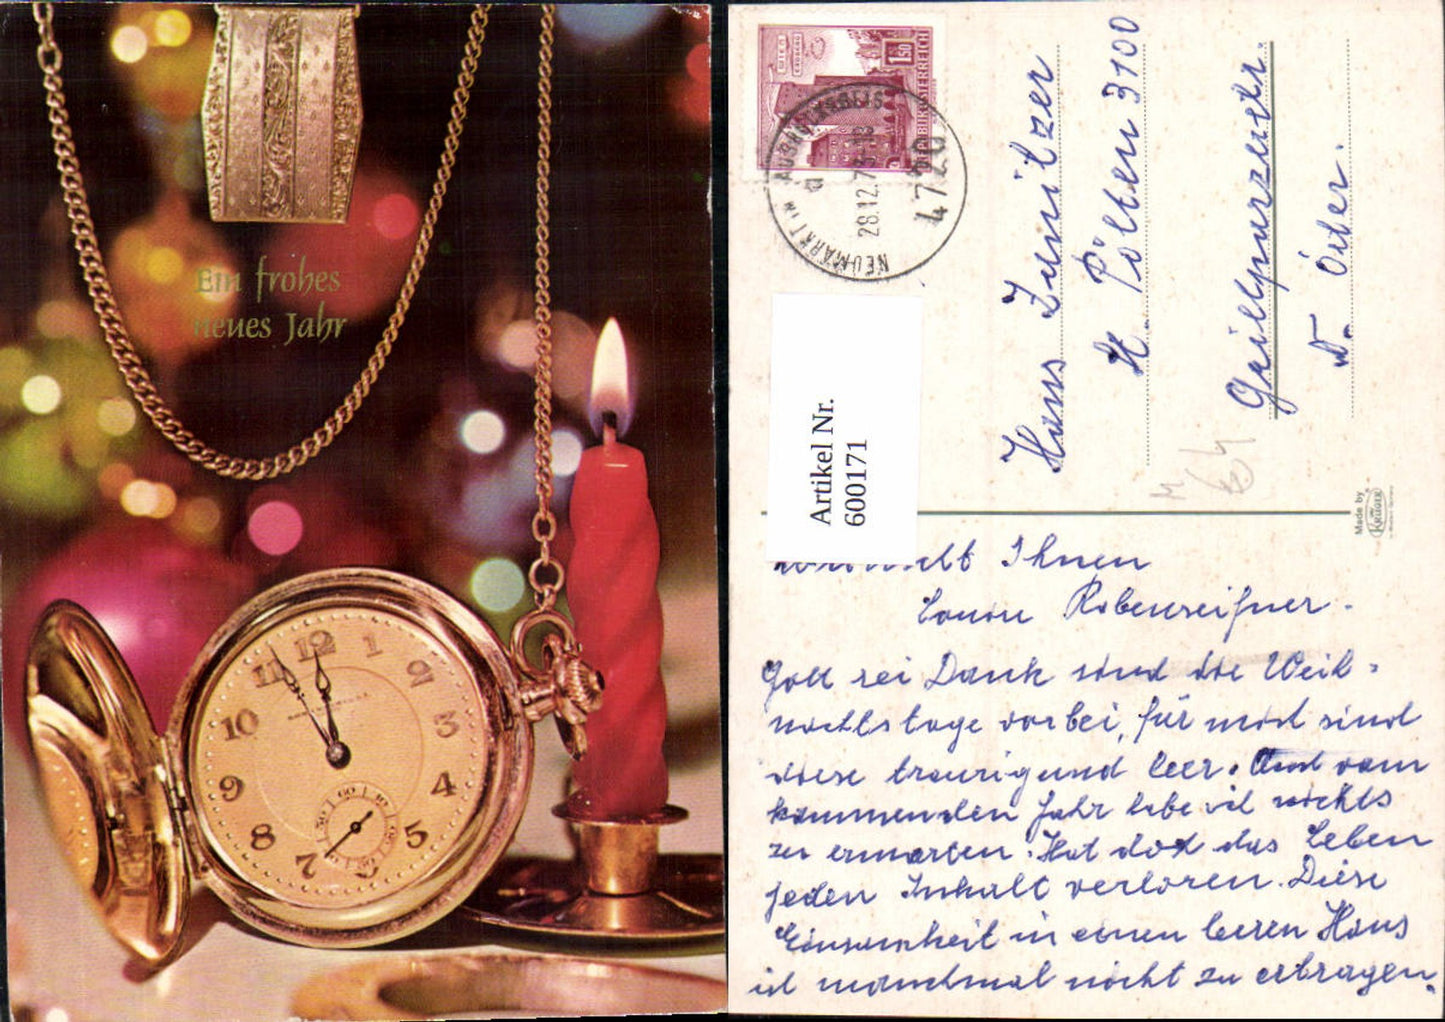 Ein frohes
neues Jahr
11
12
1
2
3
4
5
7
8
9
10
60
10
1.50
REPUBLIK ÖSTERREICH
NEUMARKT IM HAUSRUCKKREIS
a
28.12.73-18
4720
Hans
St. Pölten 3100
Grillparzerstr.
N. Öster.
Artikel Nr.
600171
Made by
KRÜGER
Ihnen
Gott sei Dank sind die Weih-
nachtstage vorbei, für mich sind
diese traurig und leer. Und vom
kommenden Jahr habe ich nichts
zu erwarten. Hat doch das Leben
jeden Inhalt verloren. Diese
Einsamkeit in einen leeren Haus
ist manchmal nicht zu ertragen.